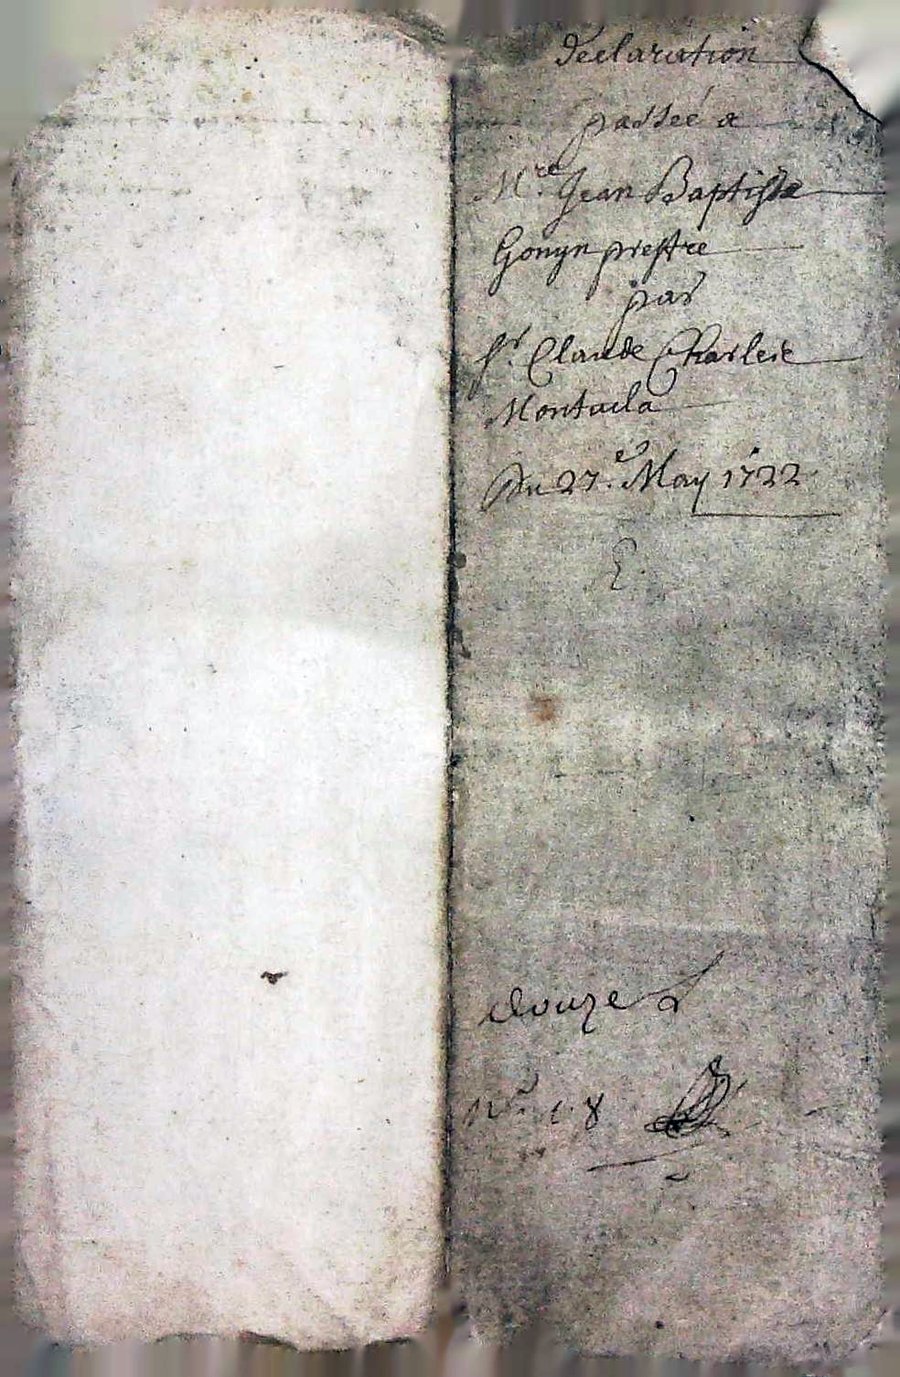 declaration
passeé a
M.re Jean Baptiste
Gonyn prestre
par
Sr. Claude Charleie
Montaila
Du 27.e May 1722
E.
douze
No. 18